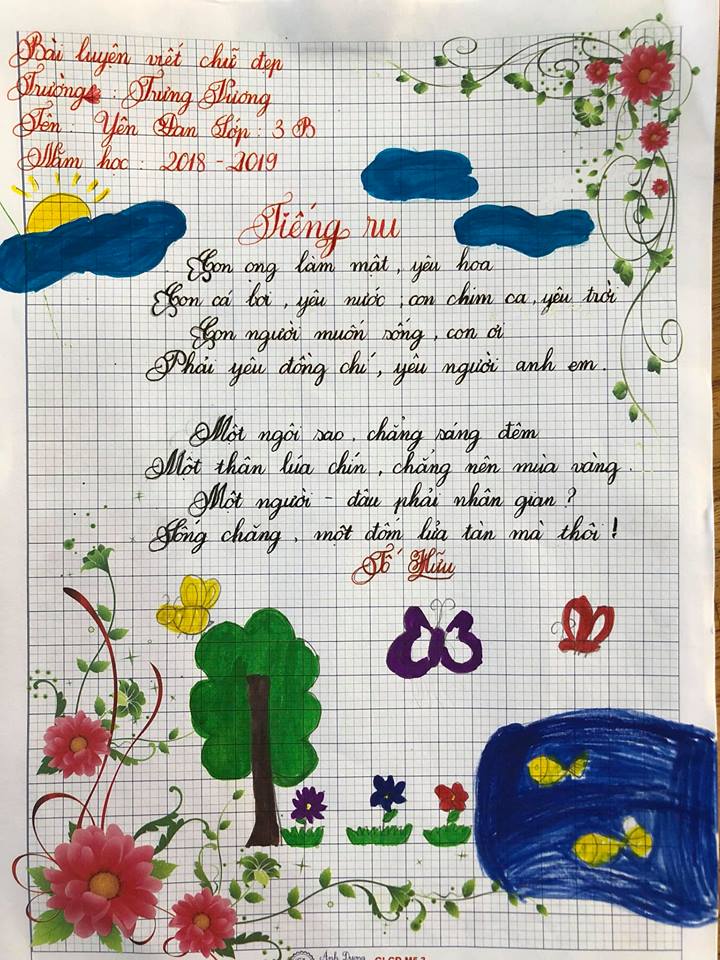 Bài luyện viết chữ đẹp
Trường : Trưng Vương
Tên : Yên Đan Lớp : 3 B
Năm học : 2018 - 2019
Tiếng ru
Con ong làm mật, yêu hoa
Con cá bơi, yêu nước ; con chim ca, yêu trời
Con người muốn sống, con ơi
Phải yêu đồng chí, yêu người anh em.
Một ngôi sao, chẳng sáng đêm
Một thân lúa chín, chẳng nên mùa vàng.
Một người - đâu phải nhân gian ?
Sống chăng, một đốm lửa tàn mà thôi !
Tố Hữu
Anh Dương